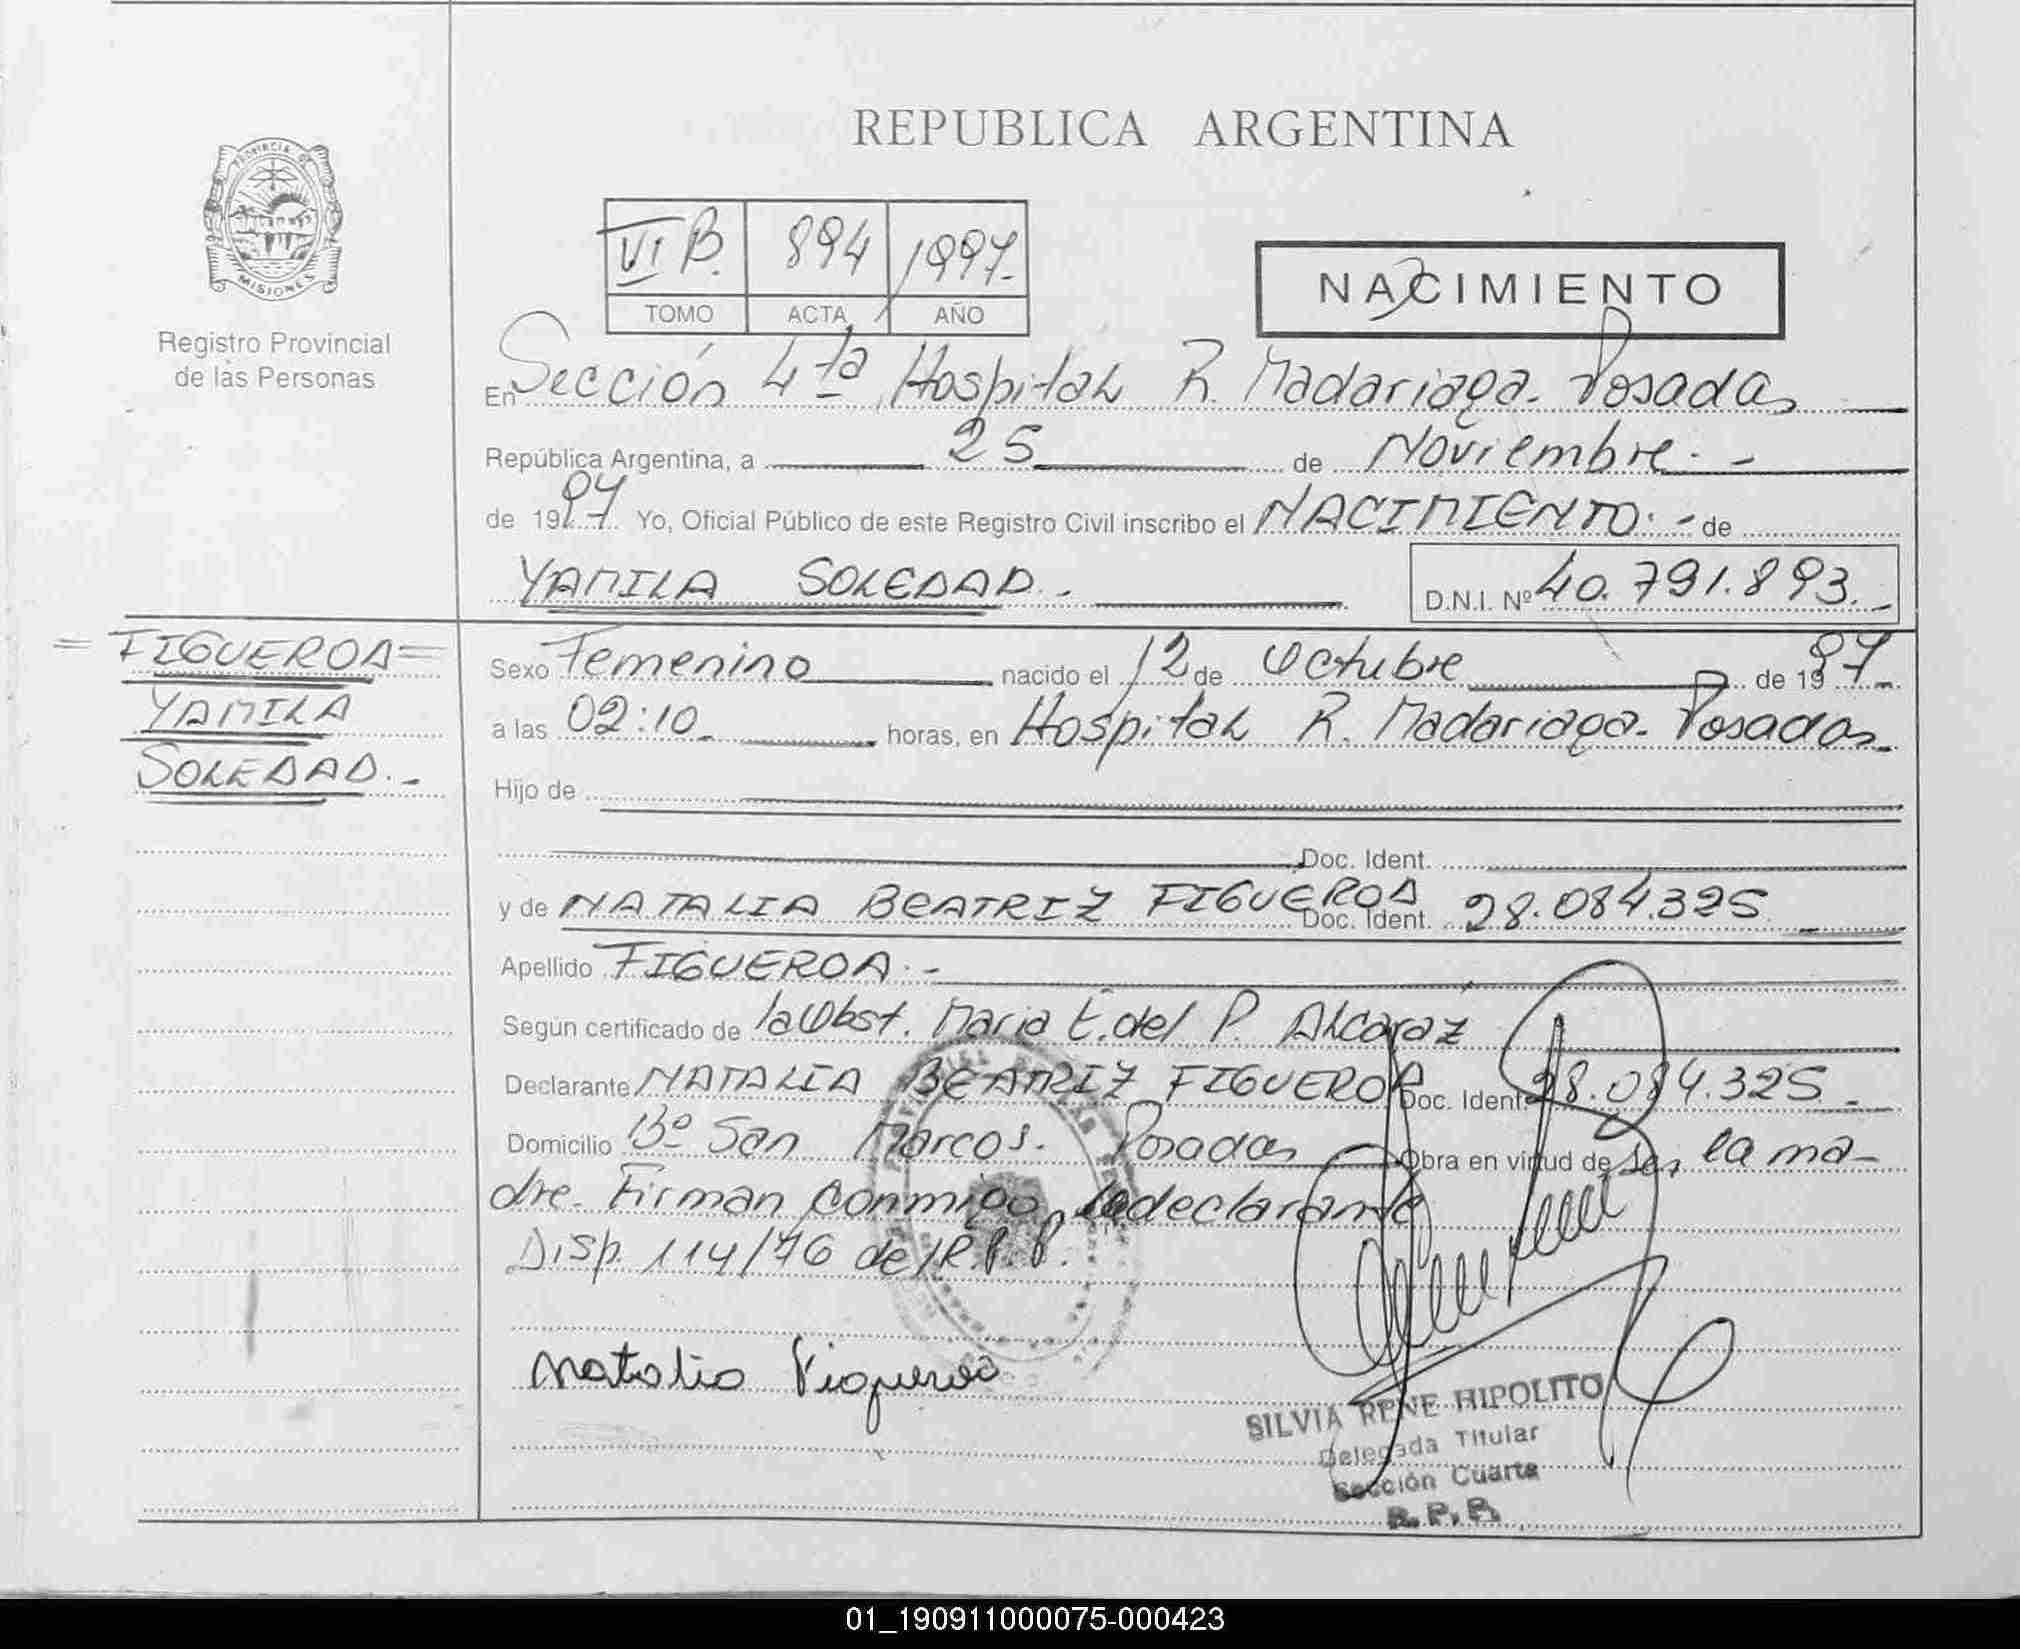 REPUBLICA ARGENTINA
PROVINCIA DE
MISIONES
Registro Provincial
de las Personas
VI B. 894 1997.-
TOMO ACTA AÑO
NACIMIENTO
En Sección 4ta Hospital R. Madariaga. Posadas
República Argentina, a 25 de Noviembre.-
de 1997. Yo, Oficial Público de este Registro Civil inscribo el NACIMIENTO.- de
YAMILA SOLEDAD.- D.N.I. Nº 40.791.893.-
=FIGUEROA=
YAMILA
SOLEDAD.-
Sexo Femenino nacido el 12 de Octubre de 1997.
a las 02:10 horas, en Hospital R. Madariaga. Posadas.
Hijo de
Doc. Ident.
y de NATALIA BEATRIZ FIGUEROA Doc. Ident. 28.084.325
Apellido FIGUEROA.-
Según certificado de la Obst. Maria E. del P. Alcaraz
Declarante NATALIA BEATRIZ FIGUEROA Doc. Ident. 28.084.325.-
Domicilio Bº San Marcos. Posadas Obra en virtud de ser la ma-
dre. Firman conmigo la declarante
Disp. 114/76 del R.P.P.
Natalia Figueroa
SILVIA RENE HIPOLITO
Delegada Titular
Sección Cuarta
R.P.P.
01_190911000075-000423